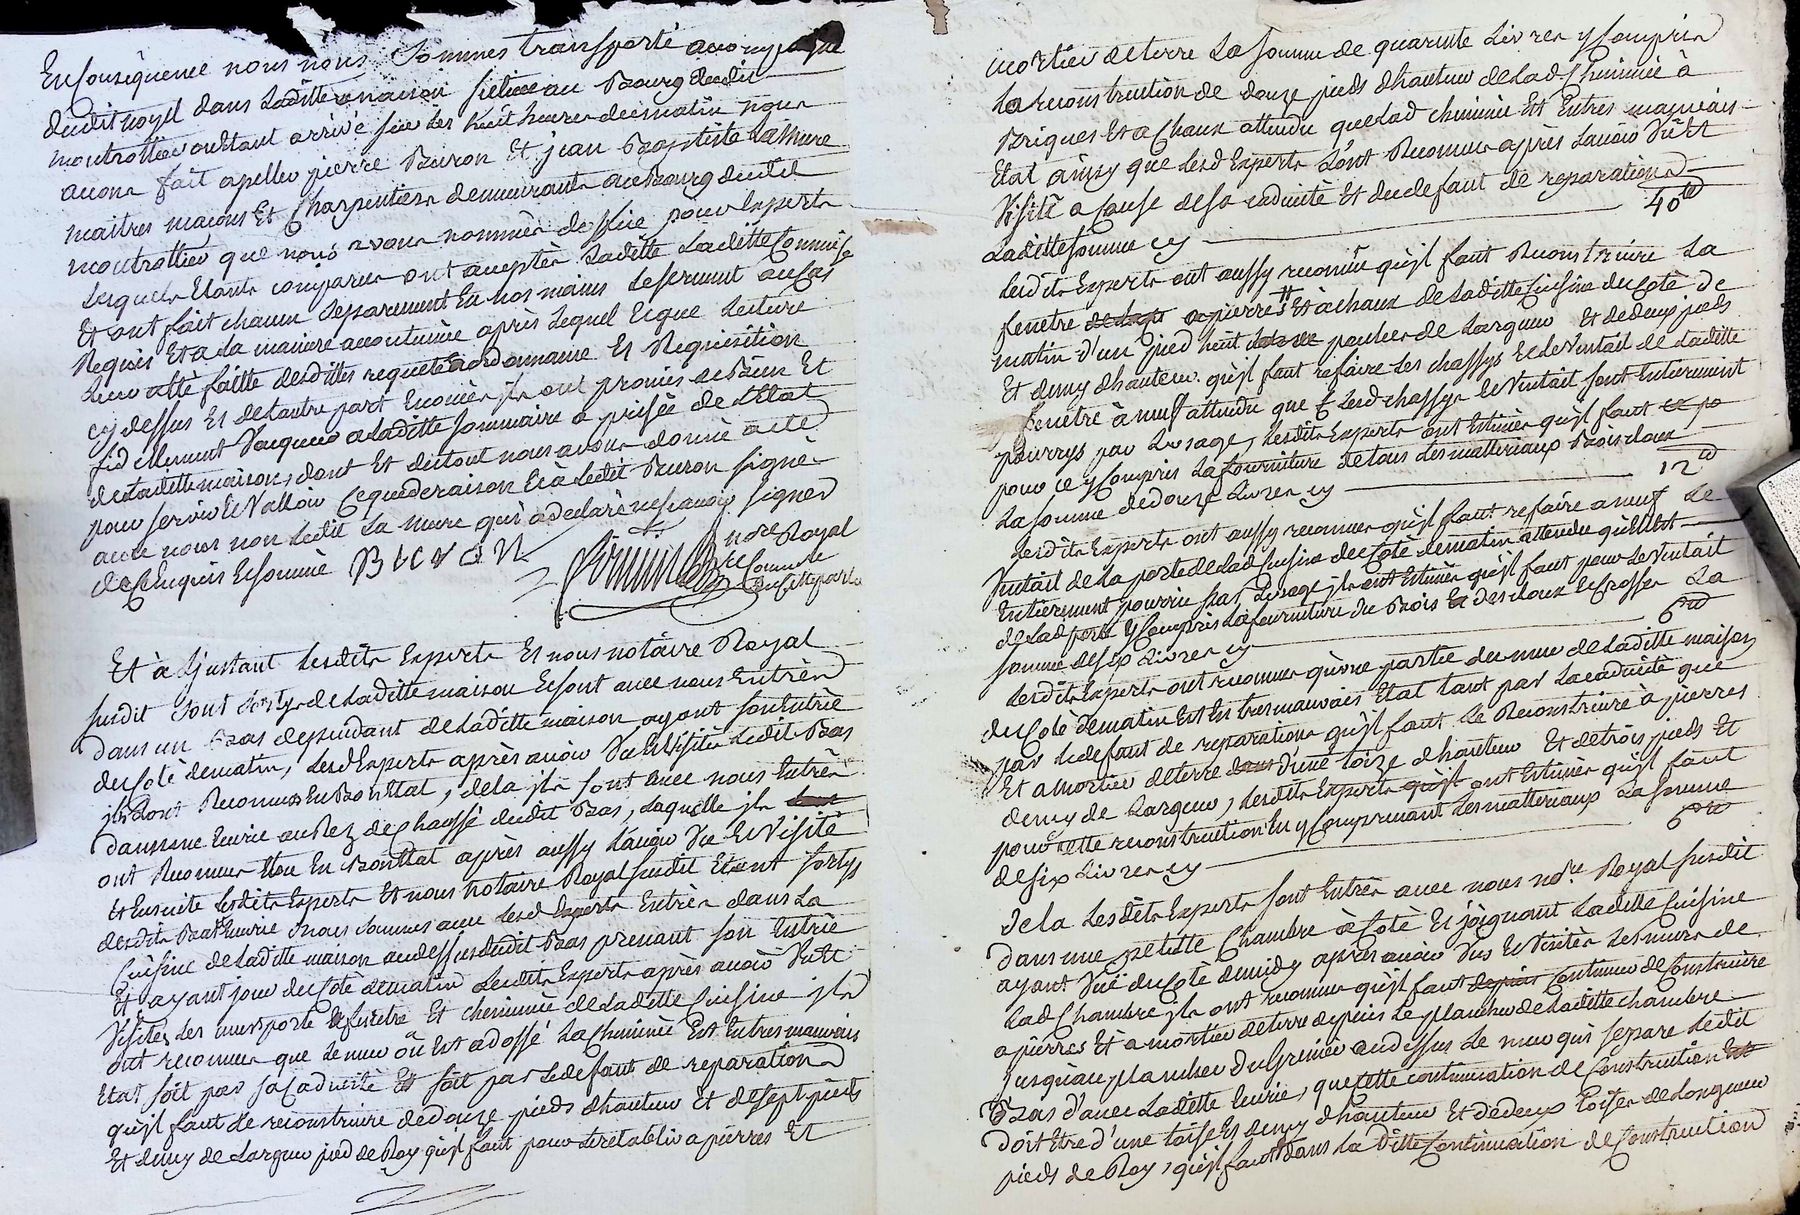 En Consêquence nous nous Sommes transporté accompagné
dudit noyel dans Laditte maison sietuee au Bourg dudit
montrottier ou Etant arrivé sur Les huit heures du matin nous
avons fait apeller pierre Buron Et jean Baptiste La Mure
maitres maçons Et Charpentiers demeurants au Bourg dudit
montrottier que nous avons nommés doffice pour Experts
Lesquels Etants comparus ont acceptés Laditte Laditte Commise
Et ont fait chacun Separement En nos mains Le serment au Cas
Requis Et a La maniere accoutumée après Lequel Et que Lecture
Leur atté faitte desdittes requete ordonnance Et Requisition
cy dessus Et de Lautre part Enoncées jls ont promis de Bien Et
fidellement Vacquer a Laditte sommaire a prisée de L'Etat
de Laditte maison, dont Et du tout nous avons donné acte
pour servir Et Valloir Ce que de raison Et à Ledit Buron signé
avec nous non Ledit La Mure qui a declaré ne sçavoir signer
de Ce Enquis Et sommé BURON
nore Royal
Commis
en Cette partie
Et à L'jnstant Lesdits Experts Et nous notaire Royal
susdit sont sortys de Laditte maison Et sont avec nous Entrés
dans un Bas dependant de Laditte maison ayant son Entrée
du Coté de matin, Lesd Experts après avoir Vu Et Visité Ledit Bas
jls Lont Reconnus En Bon Etat, de la jls sont avec nous Entrés
dans une Ecurie au Rez de Chaussé dudit Bas, Laquelle jls
ont Reconnue Etre En Bon Etat après aussy L'avoir Vue Et Visité
Et Ensuite Lesdits Experts Et nous notaire Royal susdit Etant sortys
desdits Bas Et Ecurie nous sommes avec Lesd Experts Entrés dans La
Cuisine de Laditte maison au dessus dudit Bas prenant son Entrée
Et ayant jour du Coté de matin Lesdits Experts après avoir Vu Et
Visités Les murs porte Et fenetre Et cheminée de Laditte Cuisine jls
ont reconnus que Le mur où Est adossé La Cheminée Est En tres mauvais
Etat soit par sa Caducité Et soit par Le defaut de reparations
qu'jl faut Le reconstruire de douze pieds dhauteur Et de sept pieds
Et demy de Largeur pied de Roy qu'jl faut pour Le retablir a pierres Et
mortier de terre La somme de quarante Livres y Compris
La reconstruction de douze pieds dhauteur de Lad Cheminée à
Briques Et a Chaux attendu que Lad cheminée Est En tres mauvais
Etat ainsy que Lesd Experts L'ont Reconnue après L'avoir Vu Et
Visité a Cause de sa caducité Et du defaut de reparations
Laditte somme cy 40#
Lesdits Experts ont aussy reconnu qu'jl faut Reconstruire La
fenetre a pierres Et à chaux de Laditte Cuisine du Coté de
matin d'un pied huit pouces de Largeur Et de deux pieds
Et demy dhauteur qu'jl faut refaire Les chassys Et Le Vintail de Laditte
fenetre à neuf attendu que Lesd chassys Et Vintail sont Entierement
pourrys par Lusage, Lesdits Experts ont Estimés qu'jl faut
pour ce y Compris La fourniture de tous Les matteriaux Bois cloux
La somme de douze Livres cy 12#
Lesdits Experts ont aussy reconnus qu'jl faut refaire a neuf Le
Vintail de La porte de Lad Cuisine du Coté de matin attendu qu'il Est
Entierement pourrie par Lusage jls ont Estimés qu'jl faut pour Le Vintail
de Lad porte y Compris La fourniture du Bois Et des cloux Et Crosses La
somme de six Livres cy 6#
Lesdits Experts ont reconnus qu'une partie du mur de Laditte maison
du Coté de matin Est En tres mauvais Etat tant par La caducité que
par Le defaut de reparations qu'jl faut Le Reconstruire à pierres
Et a mortier de terre d'une toize dhauteur Et de trois pieds Et
demy de Largeur, Lesdits Experts ont Estimés qu'jl faut
pour cette reconstruction En y Comprenant Les matteriaux La somme
de six Livres cy 6#
De la Lesdits Experts sont Entrés avec nous nore Royal susdit
dans une petitte Chambre à Coté Et joignant Laditte Cuisine
ayant Vüe du Coté de midy après avoir Vus Et Visités Les murs de
Lad Chambre jls ont reconnus qu'jl faut Continuer de Construire
a pierres Et a mortier de terre depuis Le plancher de Laditte chambre
jusqu'au plancher du Grenier au dessus Le mur qui separe Ledit
Bas d'avec Laditte Ecurie, que Cette continuation de Construction
doit Etre d'une toise Et demy dhauteur Et de deux toises de Longueur
pieds de Roy, qu'jl faut dans La ditte Continuation de Construction